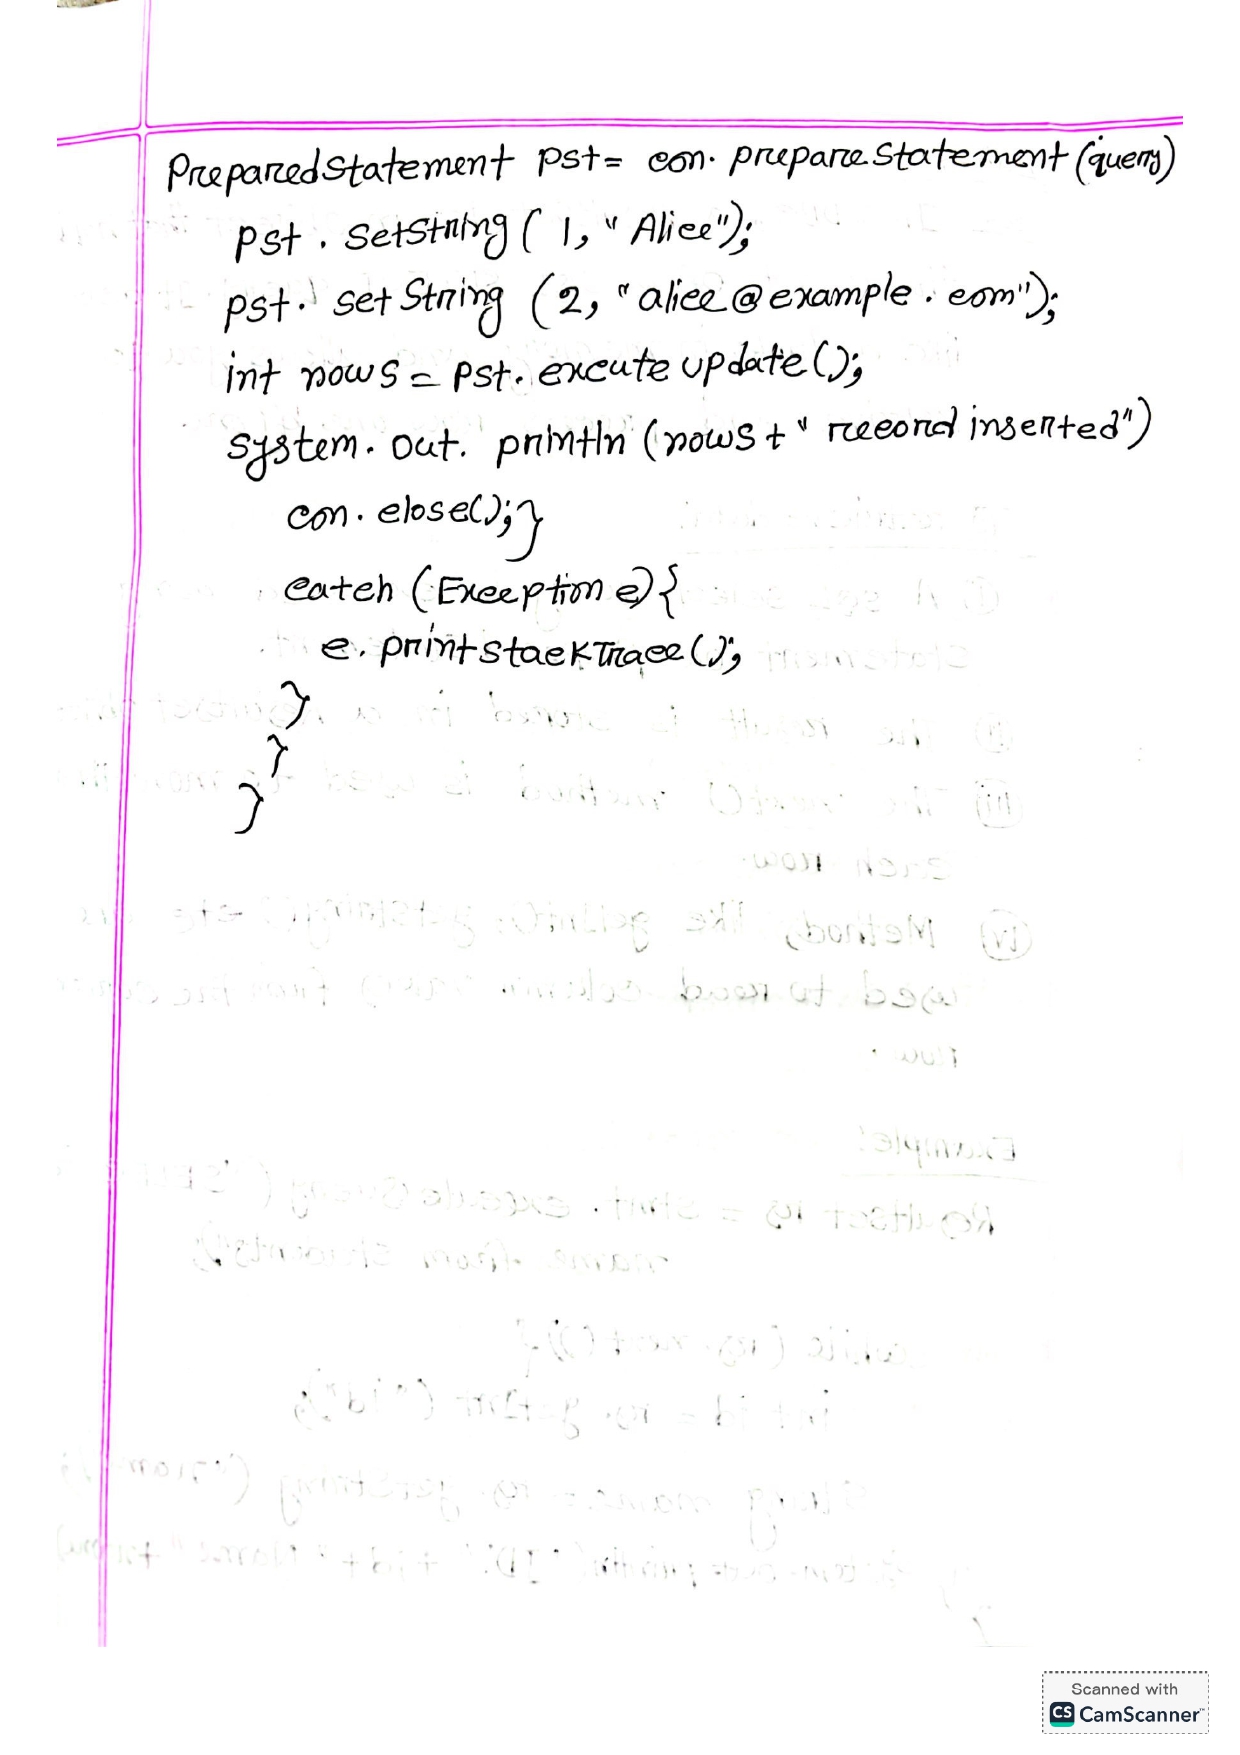 PreparedStatement pst= con. prepareStatement(query)
pst. SetString( 1, "Alice");
pst. setString (2, "alice@example.com");
int rows = pst. excute update();
system. out. println (rows + " record inserted")
con. close();}
catch (Exception e){
e. printstackTrace();
}
}
}
Scanned with
CS CamScanner